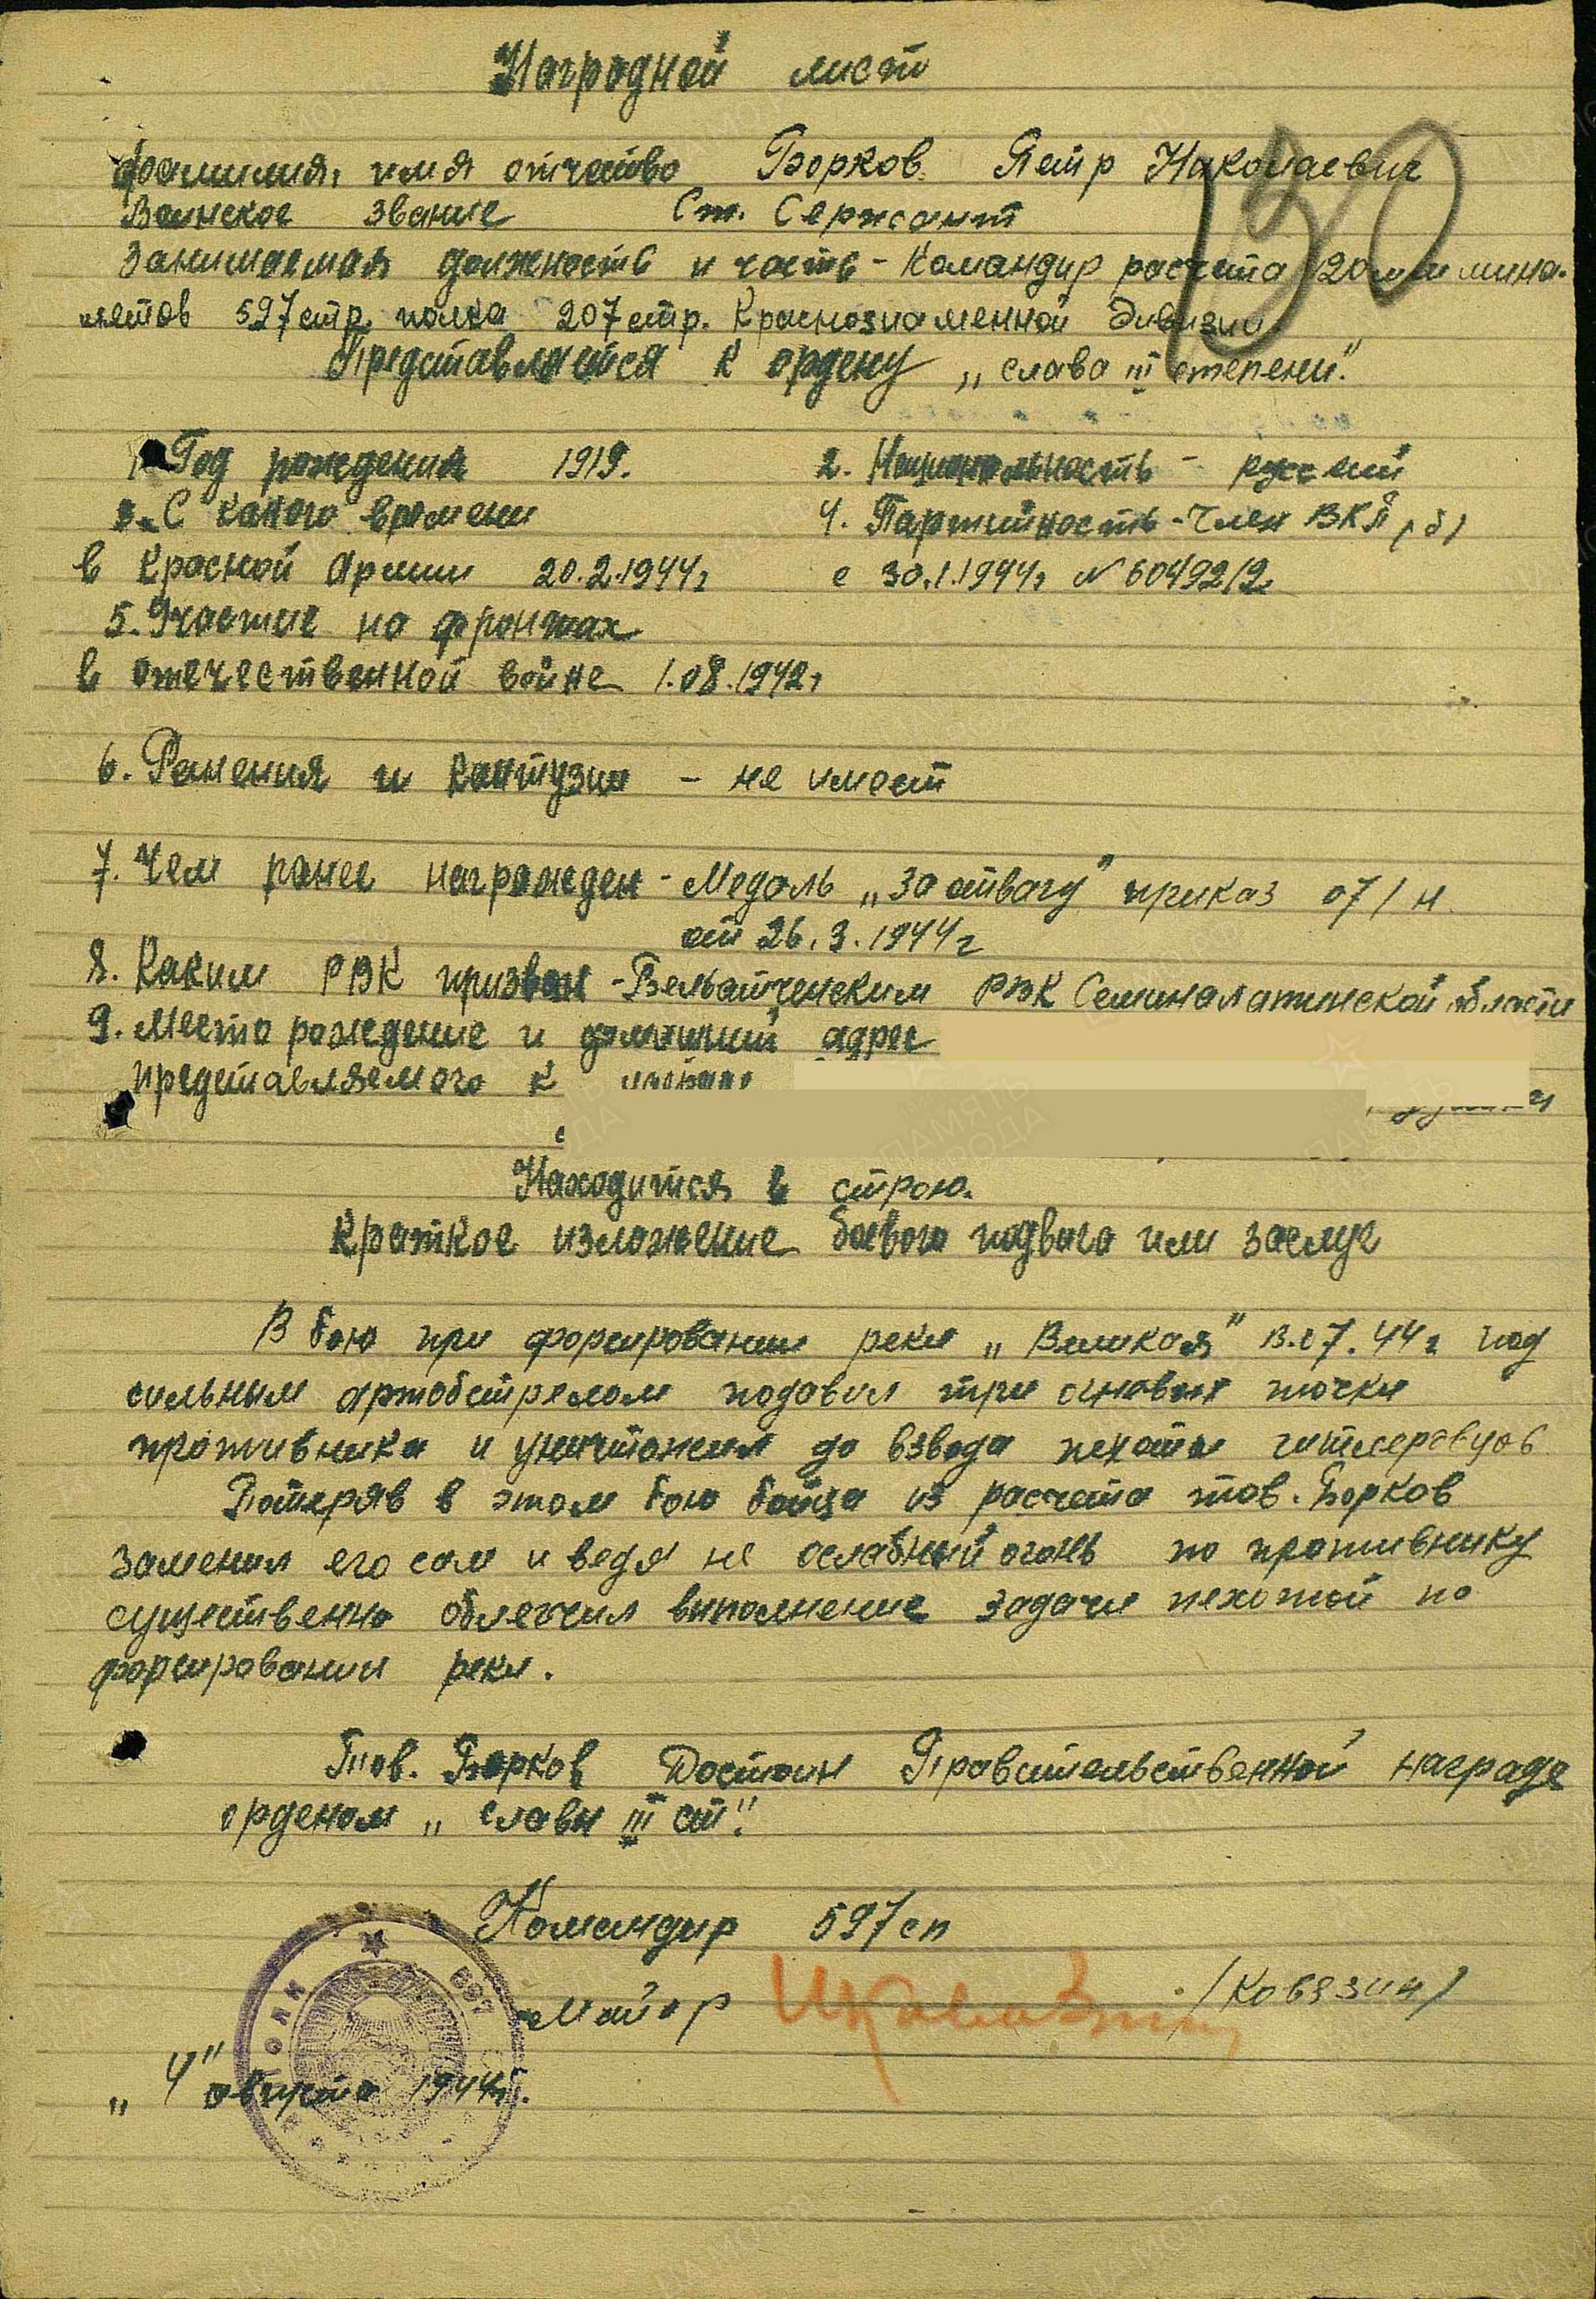 Наградной лист
130
Фамилия, имя отчество Борков Петр Николаевич
Воинское звание Ст. Сержант
Занимаемая должность и часть - Командир расчета 120 мм мино-
метов 597 стр. полка 207 стр. Краснознаменной дивизии
Представляется к ордену „слава III степени".
1. Год рождения 1919. 2. Национальность - русский
3. С какого времени 4. Партийность - Член ВКП(б)
в Красной Армии 20.2.1944г с 30.1.1944г N 6049212
5. Участие на фронтах
в отечественной войне 1.08.1942г
6. Ранения и контузия - не имеет
7. Чем ранее награжден - Медаль „За отвагу" приказ 07/н
от 26.3.1944г
8. Каким РВК призван - РВК Семипалатинской области
9. Место рождение и домашний адрес
представляемого к
Находится в строю.
Краткое изложение боевого подвига или заслуг
В бою при форсировании реки „Великая" 07.44г под
сильным артобстрелом подавил три огновых точки
противника и уничтожил до взвода пехоты гитлеровцов
Потеряв в этом бою бойца из расчета тов. Борков
заменил его сам и ведя не ослабный огонь по противнику
существенно облегчил выполнение задачи пехотой по
форсировании реки.
Тов. Борков Достоин Правительственной награде
орденом „славы III ст".
Командир 597 сп
Майор /Ковязин/
„4" августа 1944г.